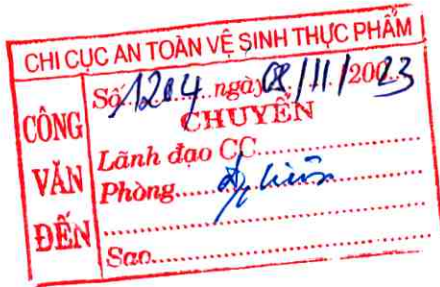 CHI CỤC AN TOÀN VỆ SINH THỰC PHẨM
CÔNG VĂN ĐẾN
Số 1204 ngày 08/11/200 23
CHUYỂN
Lãnh đạo CC
Phòng
Sao